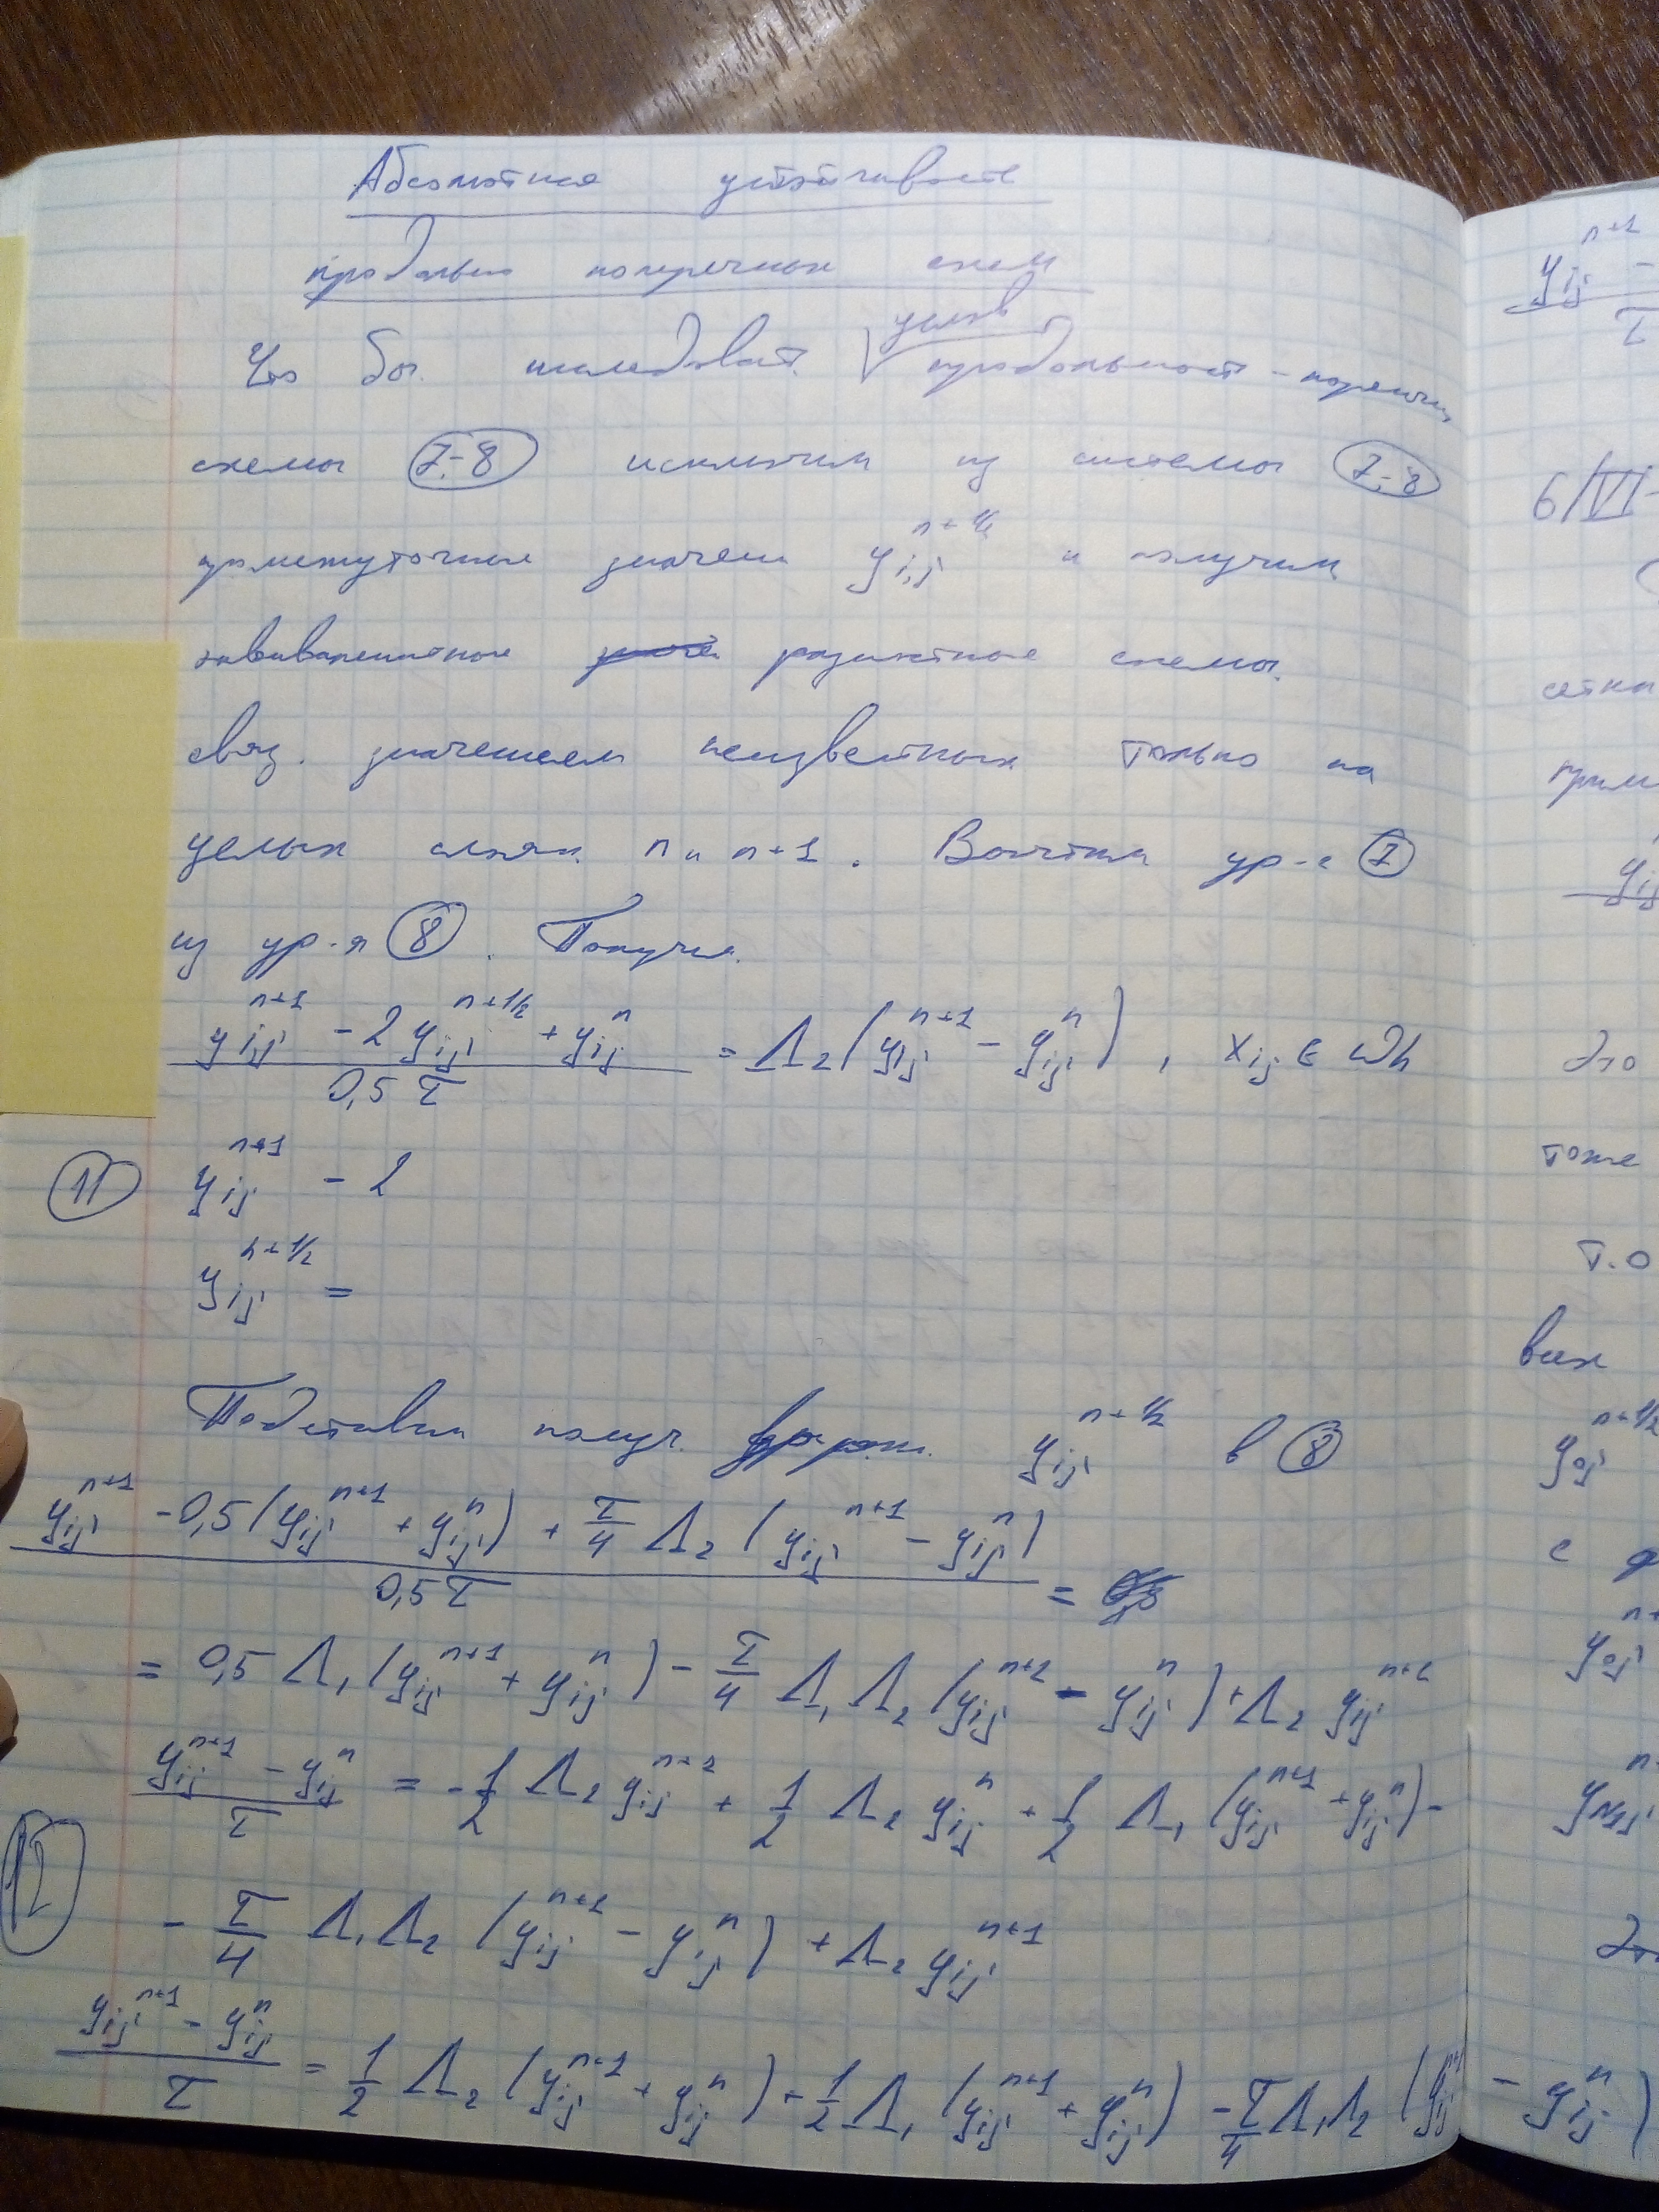 Абсолютная устойчивость
продольно поперечных схем
Что бы исследоват. услов продольност-попереч.
схемы 7-8 исключим из системы 7-8
промежуточные значен y_{i,j}^{n+1/2} и получим
эквивалентные разностные схемы.
связ. значением неизвестных только на
целых слоях n и n+1. Вычтем ур-е 7
из ур-я 8. Получим.
(y_{ij}^{n+1} - 2y_{ij}^{n+1/2} + y_{ij}^{n}) / 0,5τ = Λ₂(y_{ij}^{n+1} - y_{ij}^{n}), x_{ij} ∈ ωh
11 y_{ij}^{n+1} - 2
y_{ij}^{n+1/2} =
Подставим получ. y_{ij}^{n+1/2} в 8
(y_{ij}^{n+1} - 0,5(y_{ij}^{n+1} + y_{ij}^{n}) + τ/4 Λ₂(y_{ij}^{n+1} - y_{ij}^{n})) / 0,5τ =
= 0,5 Λ₁(y_{ij}^{n+1} + y_{ij}^{n}) - τ/4 Λ₁Λ₂(y_{ij}^{n+1} - y_{ij}^{n}) + Λ₂ y_{ij}^{n+1}
(y_{ij}^{n+1} - y_{ij}^{n}) / τ = -1/2 Λ₂ y_{ij}^{n+1} + 1/2 Λ₂ y_{ij}^{n} + 1/2 Λ₁(y_{ij}^{n+1} + y_{ij}^{n}) -
12 - τ/4 Λ₁Λ₂(y_{ij}^{n+1} - y_{ij}^{n}) + Λ₂ y_{ij}^{n+1}
(y_{ij}^{n+1} - y_{ij}^{n}) / τ = 1/2 Λ₂(y_{ij}^{n+1} + y_{ij}^{n}) + 1/2 Λ₁(y_{ij}^{n+1} + y_{ij}^{n}) - τ/4 Λ₁Λ₂(y_{ij}^{n+1} - y_{ij}^{n})
y_{ij}^{n+1} -
τ
6/VI-
сетки
прим
y_{ij}
Это
тоже
т.о
всех
y_{0j}^{n+1/2}
с
y_{0j}
y_{N1j}